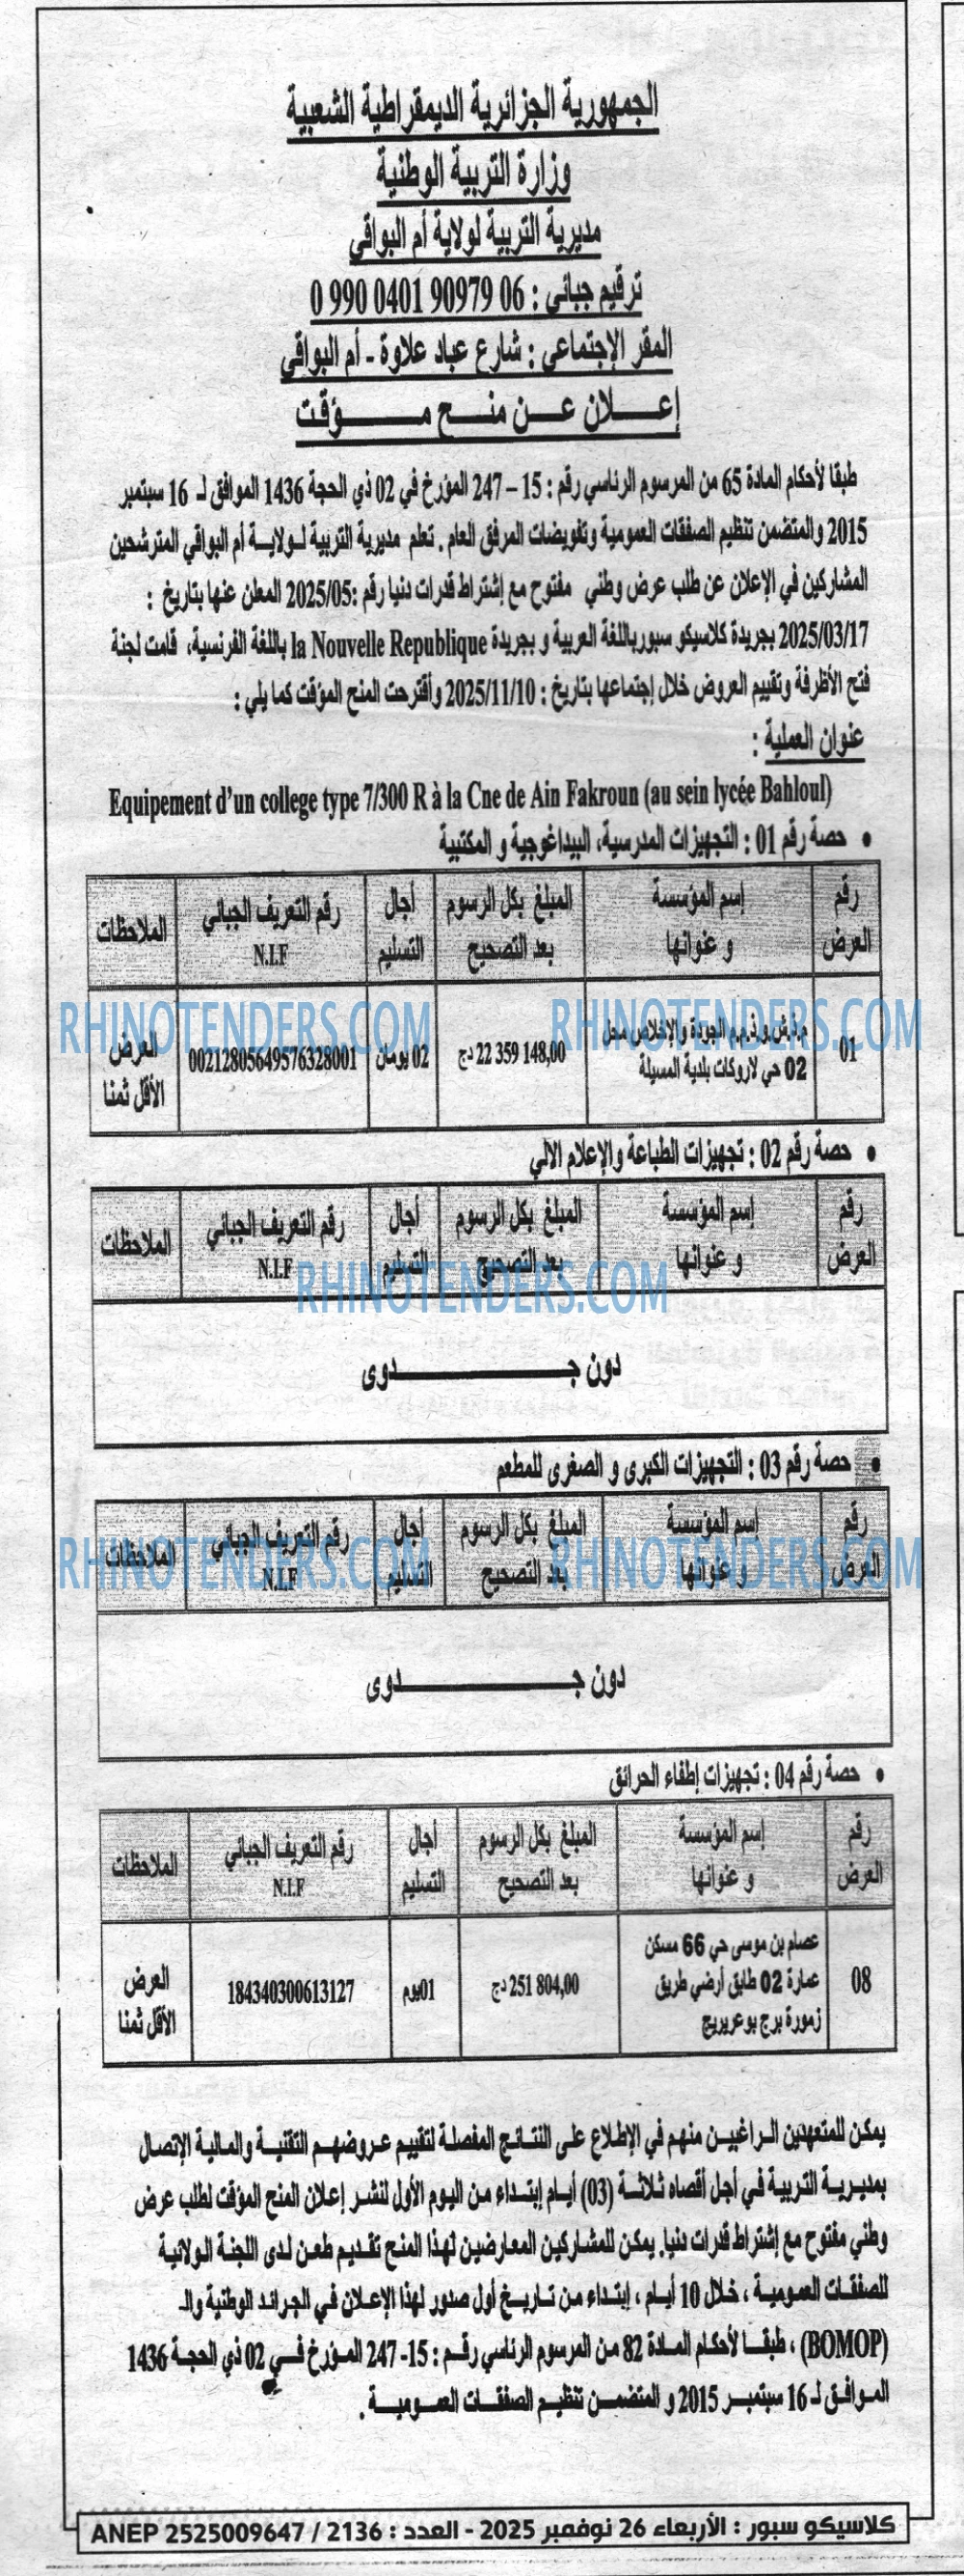 الجمهورية الجزائرية الديمقراطية الشعبية
وزارة التربية الوطنية
مديرية التربية لولاية أم البواقي
ترقيم جبائي : 06 90979 0401 990 0
المقر الإجتماعي : شارع عباد علاوة - أم البواقي
إعــــلان عــن منــح مـــــؤقت
طبقا لأحكام المادة 65 من المرسوم الرئاسي رقم : 15 – 247 المؤرخ في 02 ذي الحجة 1436 الموافق لـ 16 سبتمبر
2015 والمتضمن تنظيم الصفقات العمومية وتفويضات المرفق العام . تعلم مديرية التربية لـولايــة أم البواقي المترشحين
المشاركين في الإعلان عن طلب عرض وطني مفتوح مع إشتراط قدرات دنيا رقم :2025/05 المعلن عنها بتاريخ :
2025/03/17 بجريدة كلاسيكو سبورباللغة العربية و بجريدة la Nouvelle Republique باللغة الفرنسية، قامت لجنة
فتح الأظرفة وتقييم العروض خلال إجتماعها بتاريخ : 2025/11/10 وأقترحت المنح المؤقت كما يلي :
عنوان العملية :
Equipement d’un college type 7/300 R à la Cne de Ain Fakroun (au sein lycée Bahloul)
• حصة رقم 01 : التجهيزات المدرسية، البيداغوجية و المكتبية
رقم العرض | إسم المؤسسة و عنوانها | المبلغ بكل الرسوم بعد التصحيح | أجال التسليم | رقم التعريف الجبائي N.I.F | الملاحظات
01 | م.ذ.ش.و.ذ.م.م الجودة والإخلاص محل 02 حي لاروكات بلدية المسيلة | 22 359 148,00 دج | 02 يومان | 00212805649576328001 | العرض الأقل ثمنا
RHINOTENDERS.COM RHINOTENDERS.COM
• حصة رقم 02 : تجهيزات الطباعة والإعلام الالي
رقم العرض | إسم المؤسسة و عنوانها | المبلغ بكل الرسوم بعد التصحيح | أجال التسليم | رقم التعريف الجبائي N.I.F | الملاحظات
RHINOTENDERS.COM
دون جـــــــــــدوى
• حصة رقم 03 : التجهيزات الكبرى و الصغرى للمطعم
رقم العرض | إسم المؤسسة و عنوانها | المبلغ بكل الرسوم بعد التصحيح | أجال التسليم | رقم التعريف الجبائي N.I.F | الملاحظات
RHINOTENDERS.COM RHINOTENDERS.COM
دون جـــــــــــدوى
• حصة رقم 04 : تجهيزات إطفاء الحرائق
رقم العرض | إسم المؤسسة و عنوانها | المبلغ بكل الرسوم بعد التصحيح | أجال التسليم | رقم التعريف الجبائي N.I.F | الملاحظات
08 | عصام بن موسى حي 66 مسكن عمارة 02 طابق أرضي طريق زمورة برج بوعريريج | 251 804,00 دج | 01يوم | 184340300613127 | العرض الأقل ثمنا
يمكن للمتعهدين الـراغبيــن منهـم في الإطـلاع على النتائـج المفصلة لتقييم عـروضهـم التقنيــة والمـالية الإتصال
بمديـرية التربية فـي أجل أقصاه ثـلاثــة (03) أيـام إبتـداء مـن اليوم الأول لنشـر إعـلان المنح المؤقت لطلب عرض
وطني مفتوح مع إشتراط قدرات دنيا. يمكن للمشاركين المعـارضين لهـذا المنـح تقديـم طعـن لدى اللجنة الـولائيـة
للصفقـات العموميـة ، خـلال 10 أيـام ، إبتـداء مـن تـاريـخ أول صدور لهذا الإعـلان في الجرائد الوطنية والـ
(BOMOP) ، طبقـا لأحكام المـادة 82 مـن المرسوم الرئاسي رقـم : 15- 247 المؤرخ فـي 02 ذي الحجـة 1436
الموافـق لـ 16 سبتمبـر 2015 و المتضمـن تنظيـم الصفقـات العموميـة .
كلاسيكو سبور : الأربعاء 26 نوفمبر 2025 - العدد : 2136 / ANEP 2525009647